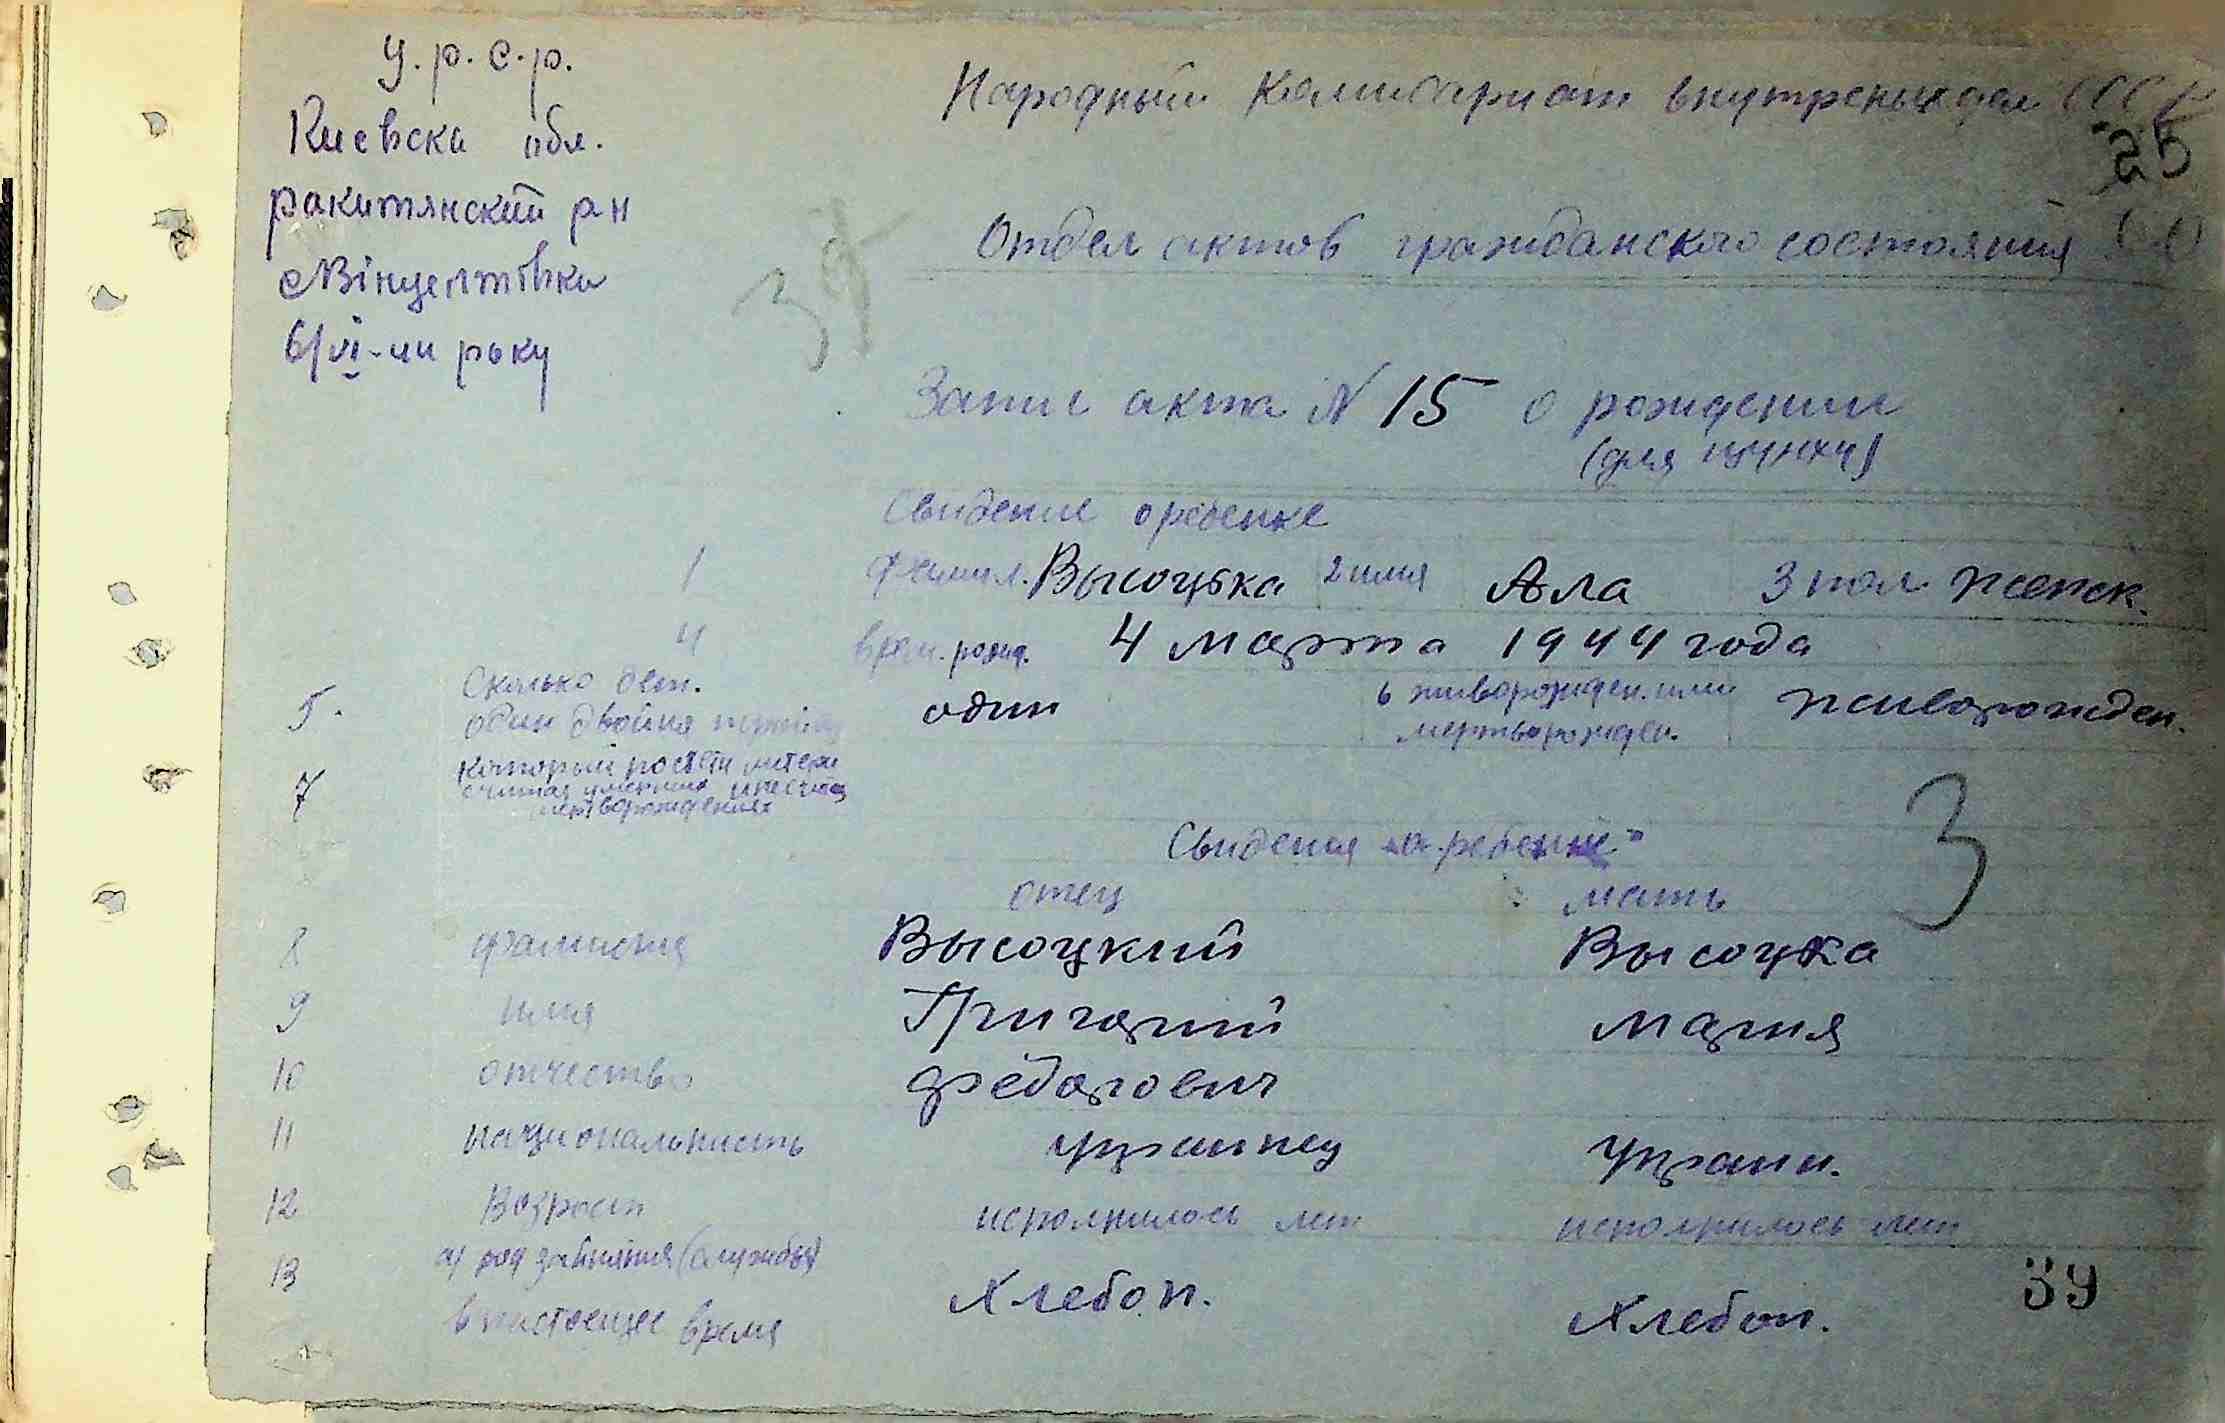 У.р.с.р.
Киевска обл.
ракитянский р н
с Вінцентівка
6/VI-ми року
Народный Комисариат внутреных дел СССР
25
Отдел актов гражданского состояния
39
Запис акта N 15 о рождении
(для цунху)
Свидение о ребенке
1 Фамил. Высоцька 2 имя Ала 3 пол женск.
4 врем. рожд. 4 марта 1944 года
5. Сколько дет. один двойня
один
6 живорожден. или мертворожден.
живорожден.
7 который
мертворожденых
Свидения о ребенке
3
отец мать
8 фамилия Высоцкий Высоцка
9 имя Григорий Мария
10 отчество Фёдорович
11 национальность украинец Украин.
12 Возраст исполнилось лет исполнилось лет
13 а) род занятия (службы)
в настоещее время
Хлебоп. Хлебоп.
39